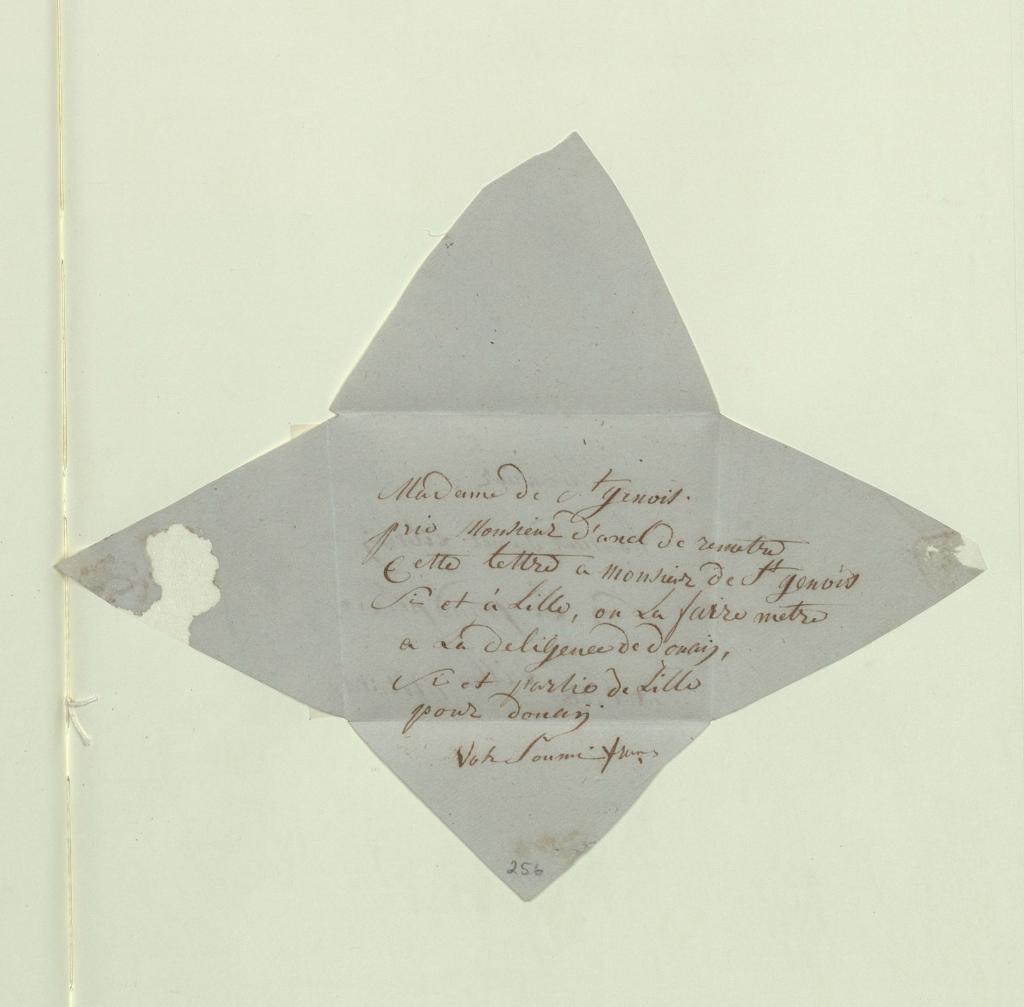 Madame de St genois.
prie Monsieur d'anel de remetre
Cette lettre a Monsieur de St genois
Si et à Lille, ou La faire metre
a La deligence de douaij,
Si et partie de Lille
pour douaij
Votr Soumi
256